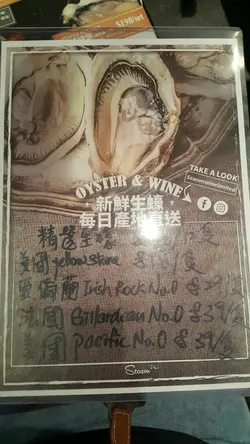 $198/set
OYSTER & WINE
新鮮生蠔
每日產地直送
TAKE A LOOK
Seasonwinelimited
精選生蠔
美國 yellowstone $ /隻
愛爾蘭 Irish Rock No.0 $ /隻
法國 Gillardeau No.0 $ /隻
美國 Pacific No.0 $ /隻
Season